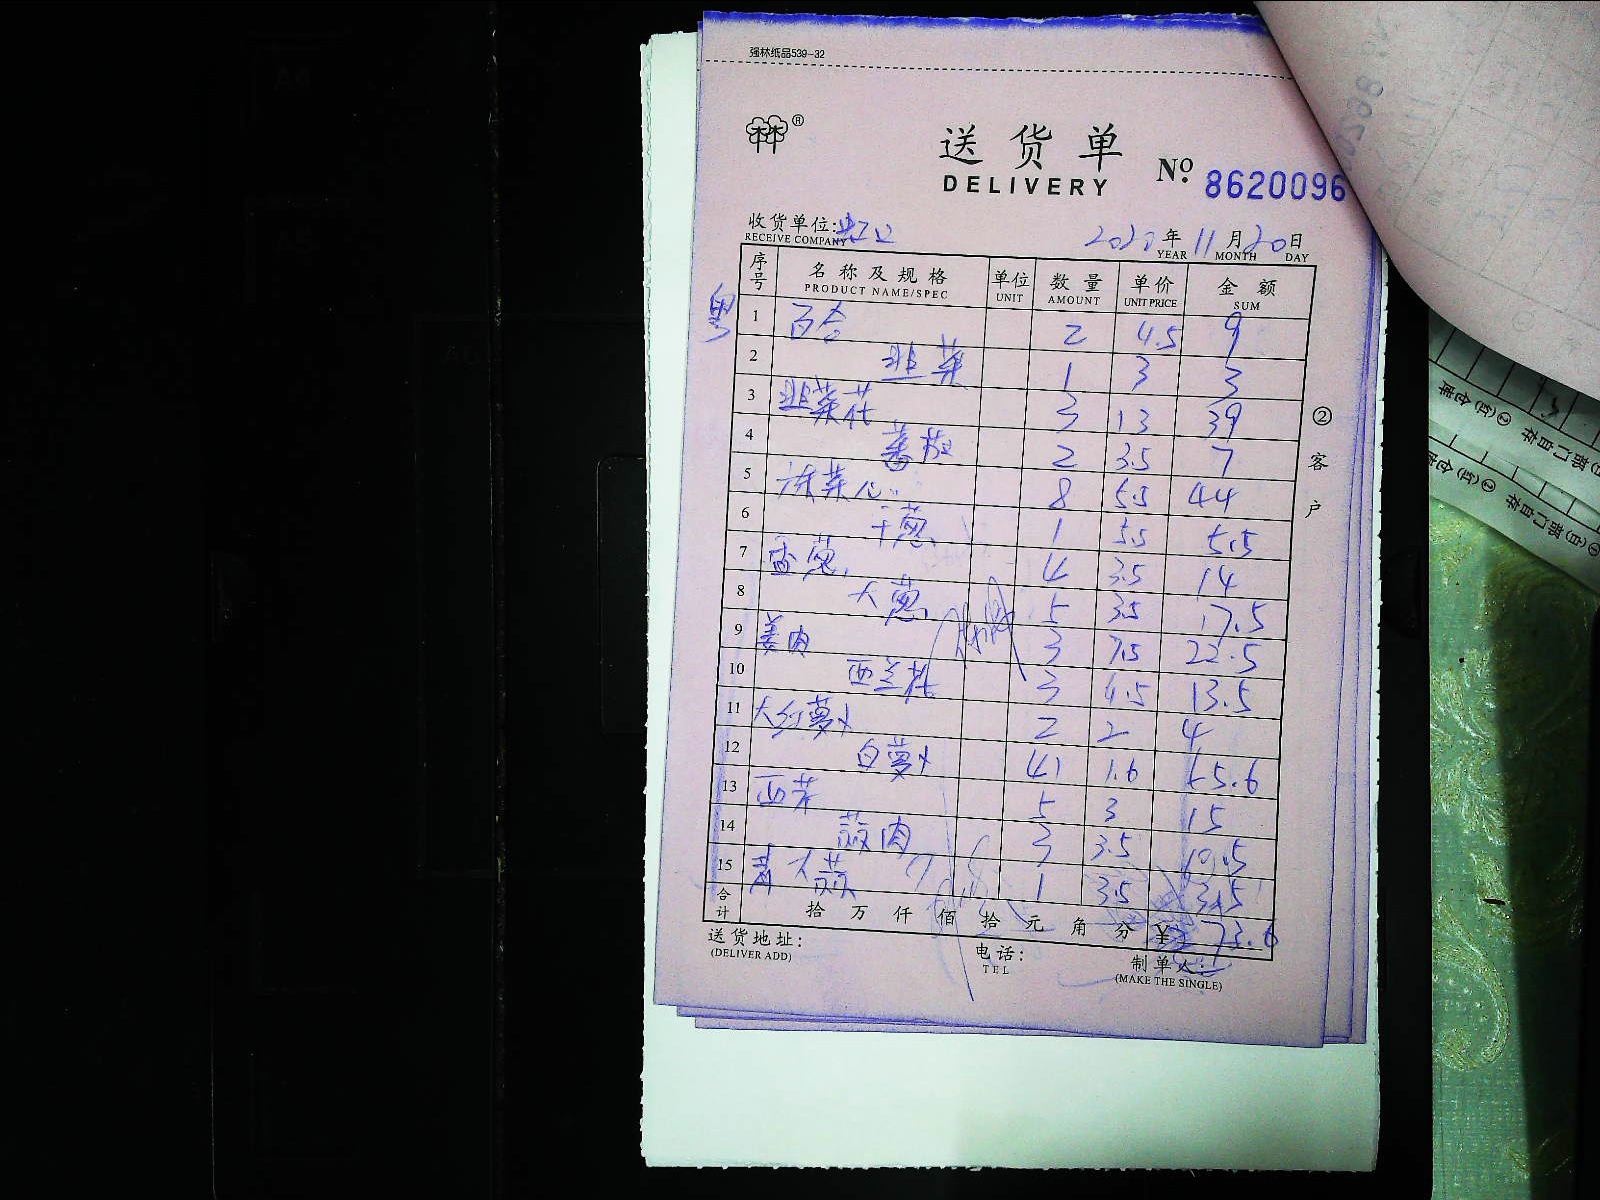 强林纸品539-32
®
送货单
DELIVERY
No. 8620096
收货单位:
RECEIVE COMPANY
2020年11月20日
YEAR MONTH DAY
序号 名称及规格 单位 数量 单价 金额
PRODUCT NAME/SPEC UNIT AMOUNT UNIT PRICE SUM
粤
1 百合 2 4.5 9
2 韭菜 1 3 3
3 韭菜花 3 13 39
4 蕃茄 2 3.5 7
5 菜心 8 5.5 44
6 干葱 1 5.5 5.5
7 葱 4 3.5 14
8 大葱 5 3.5 17.5
9 姜肉 3 7.5 22.5
10 西兰花 3 4.5 13.5
11 大红萝卜 2 2 4
12 白萝卜 41 1.6 65.6
13 西芹 5 3 15
14 蒜肉 3 3.5 10.5
15 青大蒜 1 3.5 3.5
合计 拾 万 仟 佰 拾 元 角 分 ¥ 73.6
送货地址:
(DELIVER ADD)
电话:
TEL
制单人:
(MAKE THE SINGLE)
②客户